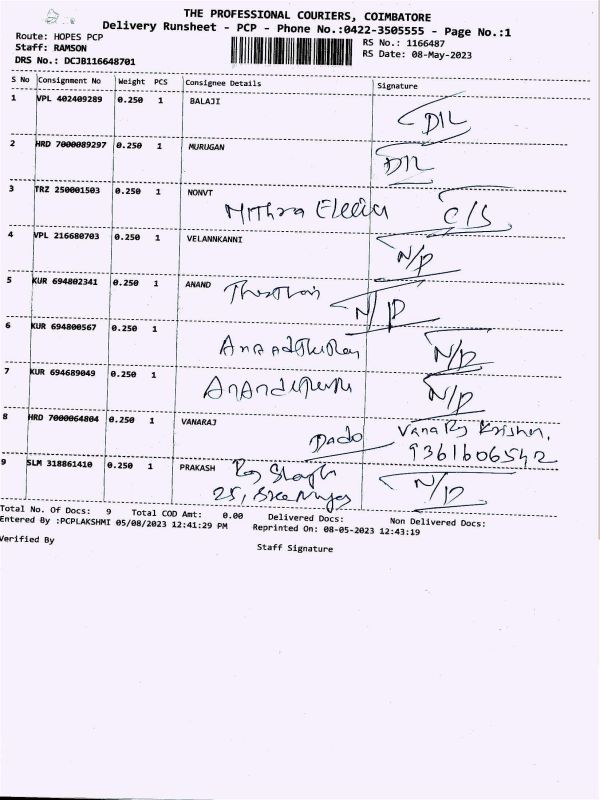 THE PROFESSIONAL COURIERS, COIMBATORE
Delivery Runsheet - PCP - Phone No.:0422-3505555 - Page No.:1
Route: HOPES PCP
Staff: RAMSON
DRS No.: DCJB116648701
RS No.: 1166487
RS Date: 08-May-2023
S No Consignment No Weight PCS Consignee Details Signature
1 VPL 402409289 0.250 1 BALAJI
D/L
2 HRD 7000089297 0.250 1 MURUGAN
D/L
3 TRZ 250001503 0.250 1 NONVT
Mithra C/S
4 VPL 216680703 0.250 1 VELANNKANNI
N/P
5 KUR 694802341 0.250 1 ANAND
N/P
6 KUR 694800567 0.250 1
N/P
7 KUR 694689049 0.250 1
N/P
8 HRD 7000064804 0.250 1 VANARAJ
Dado Vana Raj Krishn,
9361606542
9 SLM 318861410 0.250 1 PRAKASH
25, N/P
Total No. Of Docs: 9 Total COD Amt: 0.00 Delivered Docs: Non Delivered Docs:
Entered By :PCPLAKSHMI 05/08/2023 12:41:29 PM Reprinted On: 08-05-2023 12:43:19
Verified By
Staff Signature